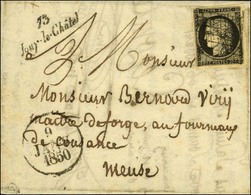 73
Jouy-le-Châtel
Monsieur
Monsieur Bernard Viry
maître de forge, au fourneau
de cousance
Meuse
9
JANV.
1850